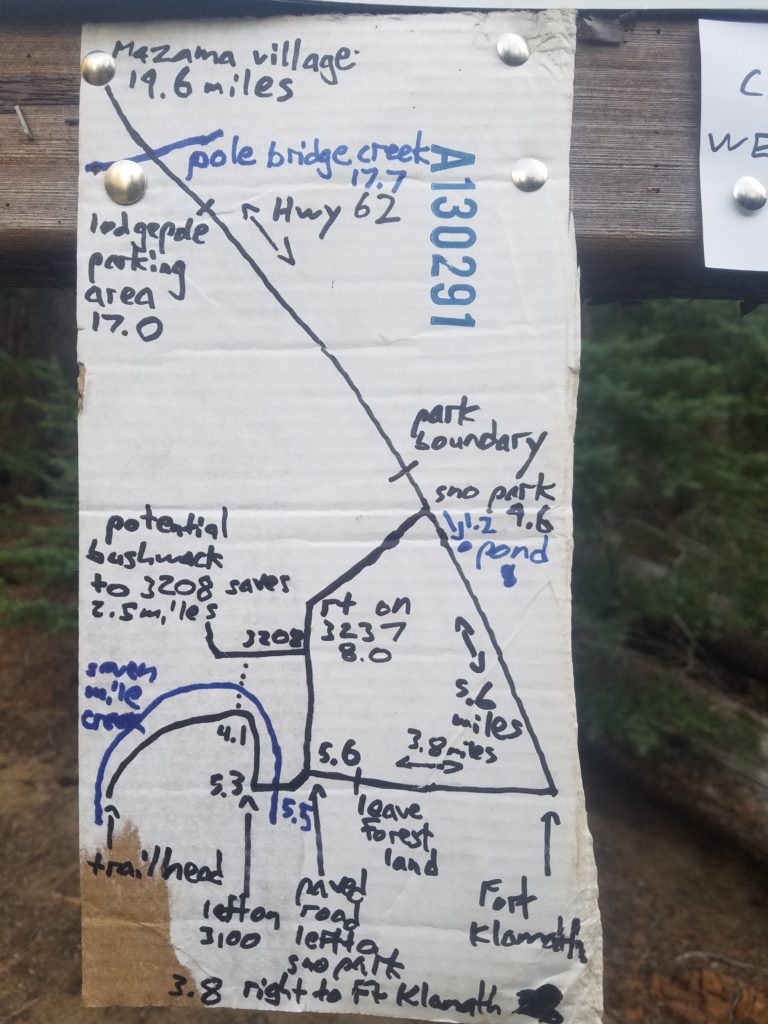 Mazama village
19.6 miles
pole bridge creek
17.7
A130291
Hwy 62
lodgepole
parking
area
17.0
park
boundary
sno park
9.6
1.2
pond
potential
bushwack
to 3208 saves
2.5 miles
rt on
3237
8.0
3208
seven
mile
creek
5.6
miles
3.8 miles
4.1
5.6
5.3
5.5
leave
Forest
land
trailhead
left on
3100
paved
road
left to
sno park
3.8 right to Ft Klamath
Fort
Klamath
C
WE